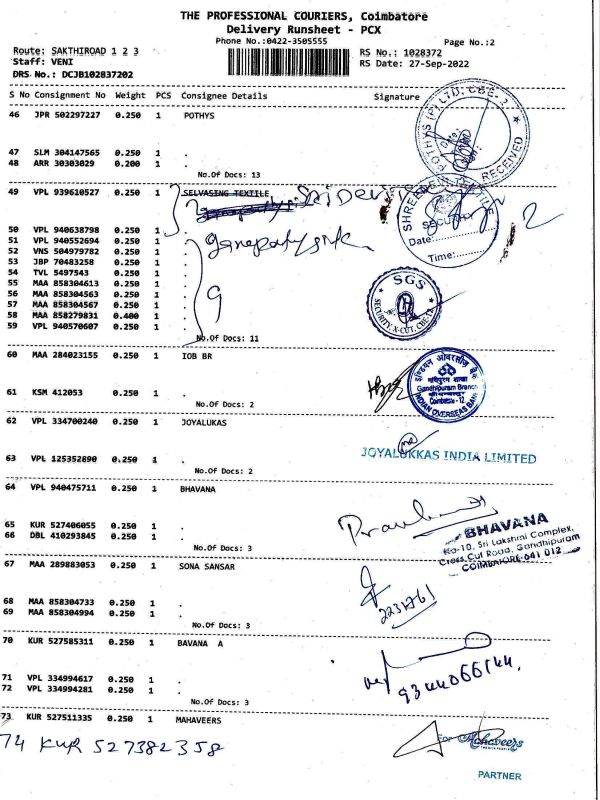 THE PROFESSIONAL COURIERS, Coimbatore
Delivery Runsheet - PCX
Phone No.:0422-3505555
Page No.:2
Route: SAKTHIROAD 1 2 3
RS No.: 1028372
Staff: VENI
RS Date: 27-Sep-2022
DRS No.: DCJB102837202
S No Consignment No Weight PCS Consignee Details Signature
46 JPR 502297227 0.250 1 POTHYS
POTHYS (P) LTD, CBE-
RECEIVED
47 SLM 304147565 0.250 1 .
48 ARR 30303029 0.200 1 .
No.Of Docs: 13
49 VPL 939610527 0.250 1 SELVASING TEXTILE
SHREE DEVI TEXTILE
SECURITY
Date:
Time:
50 VPL 940638798 0.250 1 .
51 VPL 940552694 0.250 1 .
ganapathy silk
52 VNS 504979782 0.250 1 .
53 JBP 70483258 0.250 1 .
54 TVL 5497543 0.250 1 .
55 MAA 858304613 0.250 1 .
56 MAA 858304563 0.250 1 .
9
SGS
SECURITY, X-CUT, CBE-12
57 MAA 858304567 0.250 1 .
58 MAA 858279831 0.400 1 .
59 VPL 940570607 0.250 1 .
No.Of Docs: 11
60 MAA 284023155 0.250 1 IOB BR
इंडियन ओवरसीज़ बैंक
Gandhipuram Branch
Coimbatore - 12
INDIAN OVERSEAS BANK
61 KSM 412053 0.250 1 .
No.Of Docs: 2
62 VPL 334700240 0.250 1 JOYALUKAS
JOYALUKKAS INDIA LIMITED
63 VPL 125352890 0.250 1 .
No.Of Docs: 2
64 VPL 940475711 0.250 1 BHAVANA
65 KUR 527406055 0.250 1 .
66 DBL 410293845 0.250 1 .
No.Of Docs: 3
BHAVANA
No-10, Sri Lakshmi Complex,
Cross Cut Road, Gandhipuram
COIMBATORE-641 012
67 MAA 289883053 0.250 1 SONA SANSAR
68 MAA 858304733 0.250 1 .
69 MAA 858304994 0.250 1 .
No.Of Docs: 3
70 KUR 527585311 0.250 1 BAVANA A
71 VPL 334994617 0.250 1 .
72 VPL 334994281 0.250 1 .
No.Of Docs: 3
73 KUR 527511335 0.250 1 MAHAVEERS
74 KUR 527382358
For Mahaveers
PARTNER